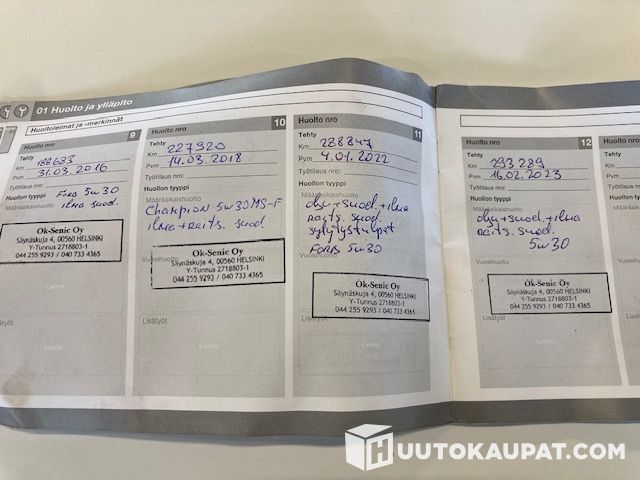 01 Huolto ja ylläpito
Huoltoleimat ja -merkinnät
Huolto nro 9
Tehty
Km 188683
Pvm 31.03.2016
Työtilaus nro:
Huollon tyyppi
Määräaikaishuolto
Ford 5W30
ilma suod.
Ök-Senic Oy
Säynäskuja 4, 00560 HELSINKI
Y-Tunnus 2718803-1
044 255 9293 / 040 733 4365
Lisätyöt
Leima
Huolto nro 10
Tehty
Km 227920
Pvm 14.03.2018
Työtilaus nro:
Huollon tyyppi
Määräaikaishuolto
Champion 5W30 MS-F
ilma+raits. suod
Vuosihuolto
Ök-Senic Oy
Säynäskuja 4, 00560 HELSINKI
Y-Tunnus 2718803-1
044 255 9293 / 040 733 4365
Lisätyöt
Leima
Huolto nro 11
Tehty
Km 288847
Pvm 4.01.2022
Työtilaus nro:
Huollon tyyppi
Määräaikaishuolto
öljy+suod.+ilma
raits. suod.
sytytystulpat
Ford 5W30
Vuosihuolto
Ök-Senic Oy
Säynäskuja 4, 00560 HELSINKI
Y-Tunnus 2718803-1
044 255 9293 / 040 733 4365
Lisätyöt
Leima
Huolto nro 12
Tehty
Km 293289
Pvm 16.02.2023
Työtilaus nro:
Huollon tyyppi
Määräaikaishuolto
öljy+suod.+ilma
raits. suod.
5W30
Vuosihuolto
Ök-Senic Oy
Säynäskuja 4, 00560 HELSINKI
Y-Tunnus 2718803-1
044 255 9293 / 040 733 4365
Lisätyöt
Leima
Huolto
Tehty
Km
Pvm
HUUTOKAUPAT.COM